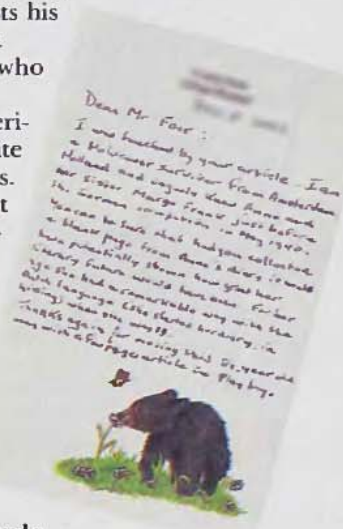 ts his
who
eri-
ite
s.
t
Dear Mr. Foer:
I was touched by your article. I am
a Holocaust Survivor from Amsterdam
Holland and vaguely knew Anne and
her Sister Margo Frank just before
the German occupation in May 1940.
You can be sure that had you collected
a blank page from Anne's diary, it would
have potentially shown how great her
literary future would have been. For her
age she had a remarkable way with the
Dutch language (she started her diary, in
hiding) when she was 13.
Thanks again for moving this year old
man with a four page article in Playboy.